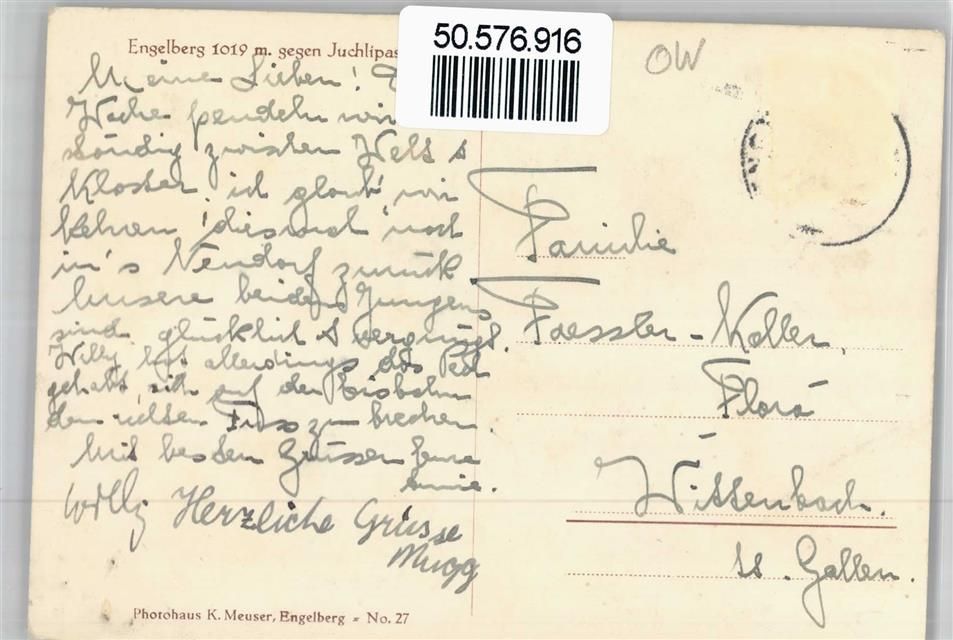 Engelberg 1019 m. gegen Juchlipas
50.576.916
OW
Meine Lieben!
Woche pendeln wir
ständig zwischen Welt &
Kloster, ich glaub' wir
kehren diesmal noch
in's zurück
Unsere beiden Jungens
sind glücklich & vergnügt.
Willy hat allerdings das Pech
gehabt, sich auf der Eisbahn
den rechten Fuss zu brechen.
Mit besten Grüssen Eure
Willy Herzliche Grüsse
Mugg
Familie
Faessler-Koller,
Flora
Wittenbach.
St. Gallen.
Photohaus K. Meuser, Engelberg - No. 27